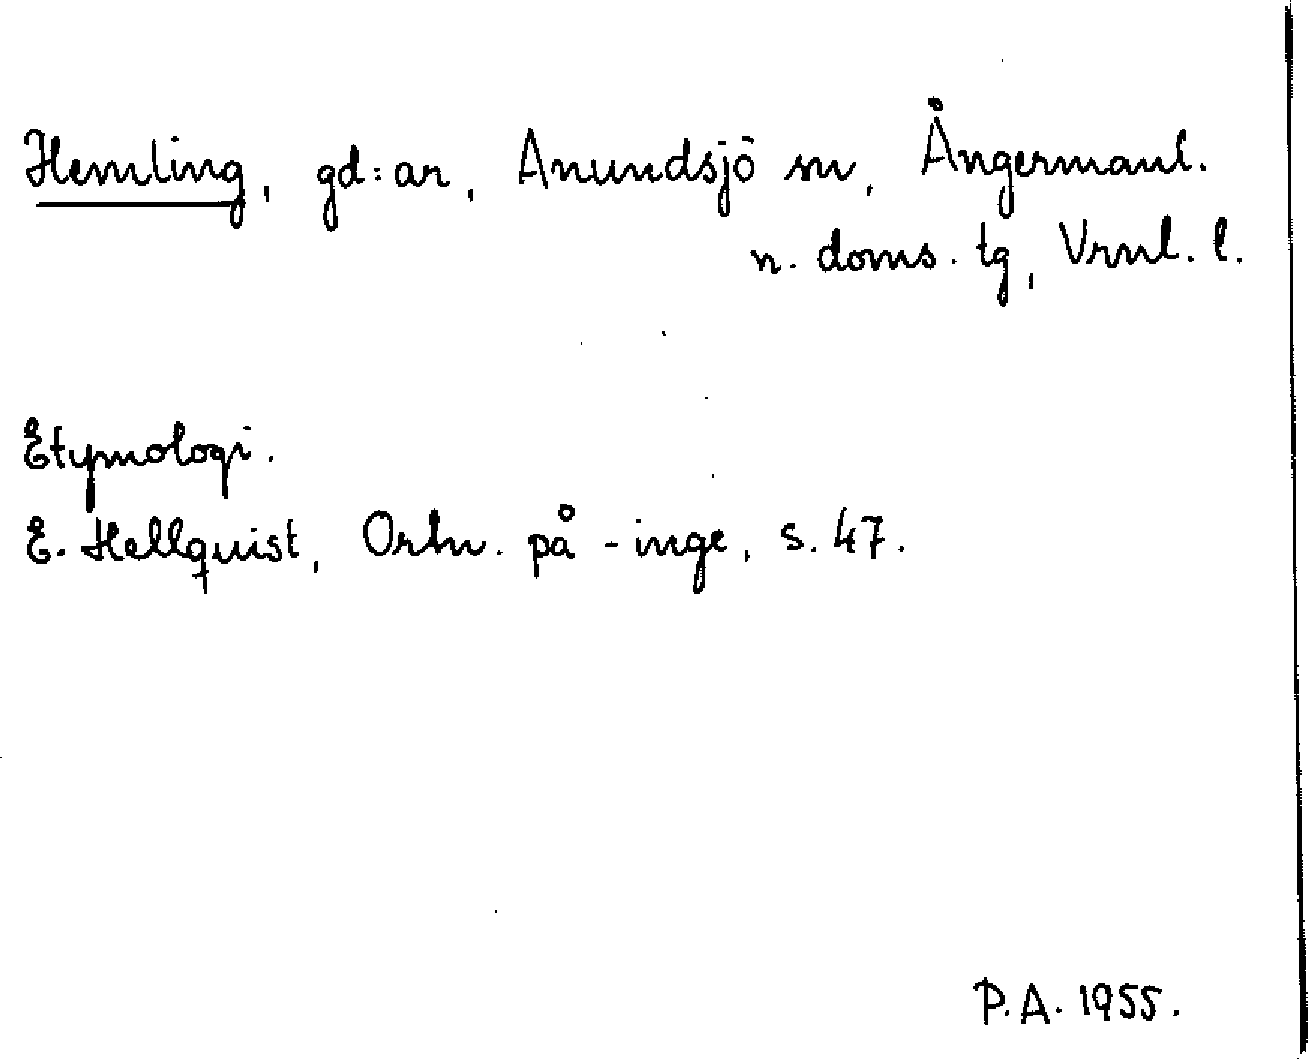 Hemling, gd:ar, Anundsjö sn, Ångermanl.
n. doms. tg, Vrnl. l.
Etymologi.
E. Hellquist, Ortn. på -inge, s. 47.
P.A. 1955.